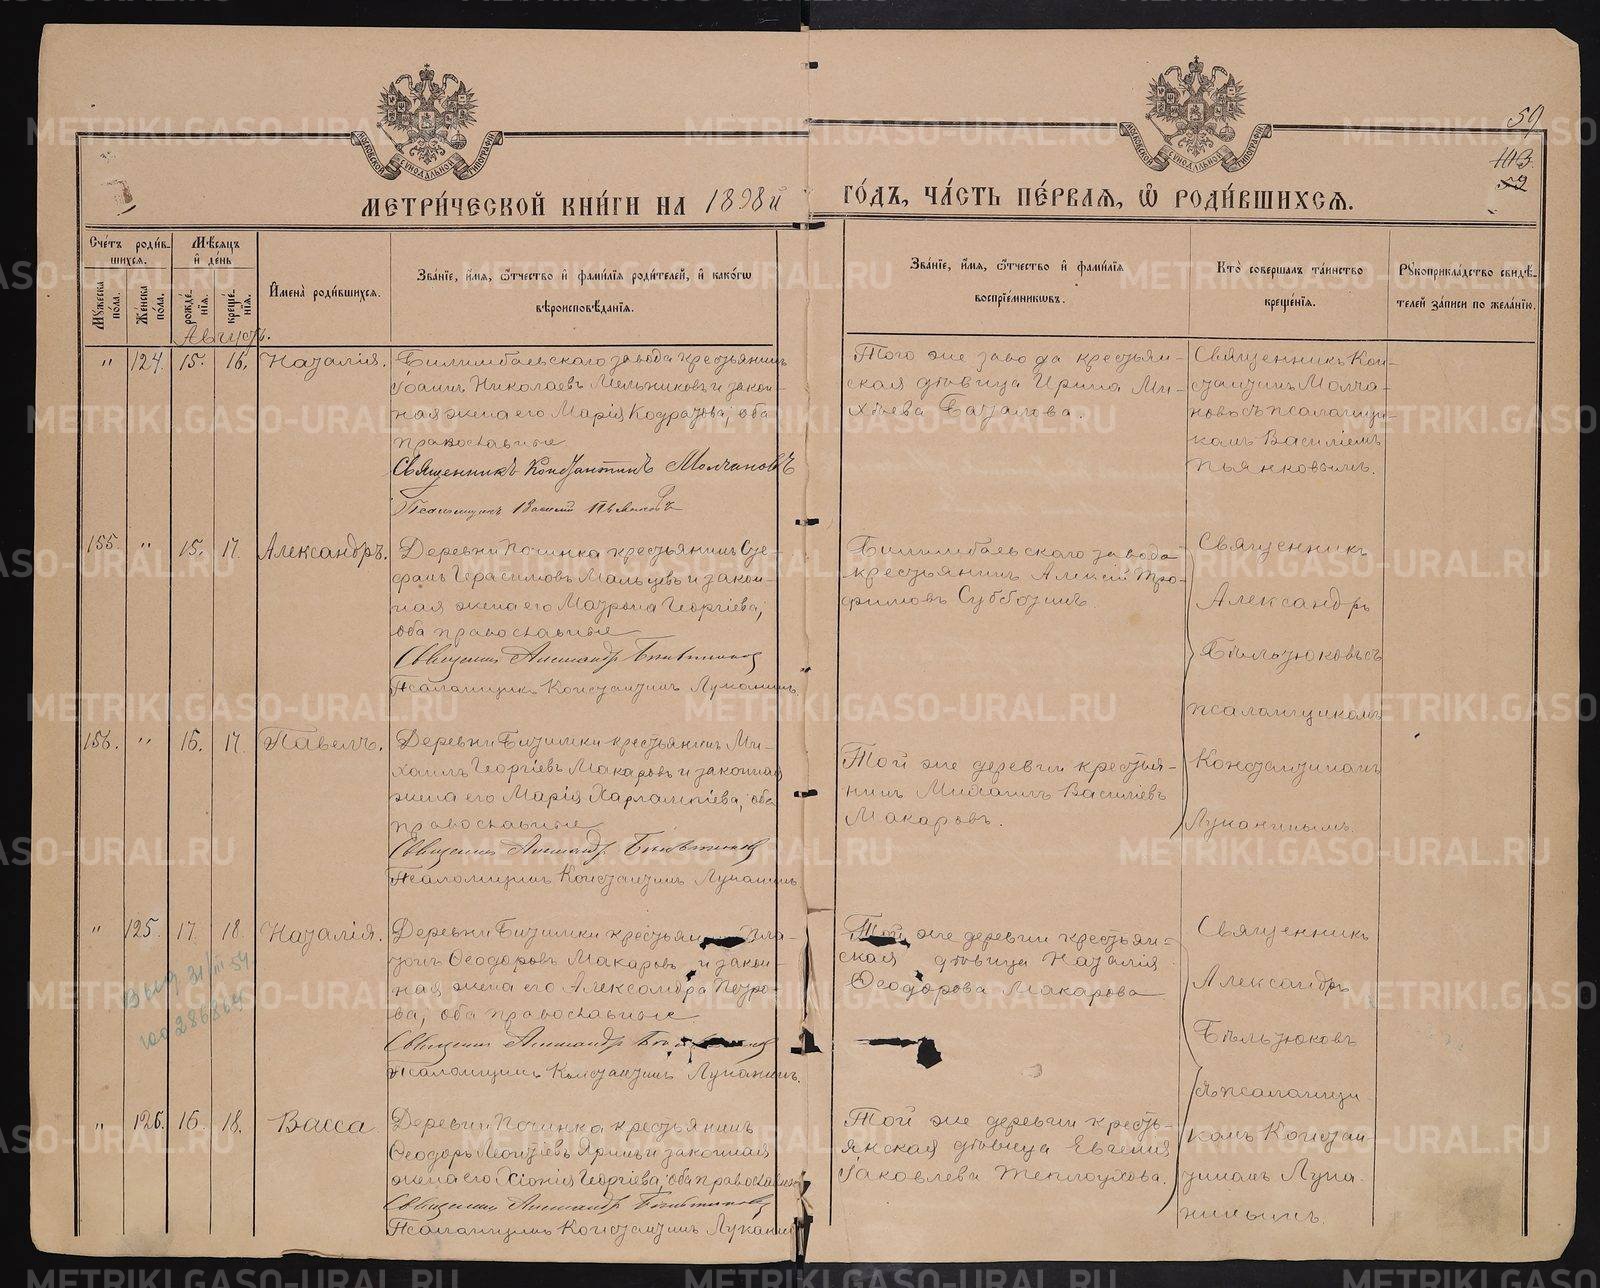 59
113
52
МЕТРИ́ЧЕСКОЙ КНИ́ГИ НА 1898й ГО́ДЪ, ЧА́СТЬ ПЕ́РВАЯ, Ѡ҆ РОДИ́ВШИХСЯ.
МОСКОВСКОЙ СУНОДАЛЬНОЙ ТИПОГРАФІИ
МОСКОВСКОЙ СУНОДАЛЬНОЙ ТИПОГРАФІИ
Сче́тъ роди́вшихся.
Мꙋ́жеска по́ла.
Же́нска по́ла.
Мѣ́сяцъ и҆ де́нь
рожде́нїѧ.
креще́нїѧ.
И҆мена̀ роди́вшихся.
Зва́нїе, и҆́мѧ, ѻ҆́тчество и҆ фамилїѧ роди́телей, и҆ како́гѡ
вѣроисповѣ́данїѧ.
Зва́нїе, и҆́мѧ, ѻ҆́тчество и҆ фами́лїѧ
воспрїе́мниковъ.
Кто̀ соверша́лъ та́инство
креще́нїѧ.
Рꙋкоприкла́дство свидѣ́-
телей за́писи по жела́нїю.
Августъ.
" 124. 15. 16. Наталія.
Билимбаевскаго завода крестьянинъ
Іоаннъ Николаевъ Мельниковъ и закон-
ная жена его Марія Кодратова; оба
православные
Священникъ Константинъ Молчановъ
Псаломщикъ Василій Пьянковъ
Того же завода крестьян-
ская дѣвица Ирина Ми-
хѣева Баталова.
Священникъ Кон-
стантинъ Молча-
новъ съ псаломщи-
комъ Василіемъ
Пьянковымъ.
155 " 15. 17. Александръ.
Деревни Починка крестьянинъ Сте-
фанъ Герасимовъ Мальцевъ и закон-
ная жена его Матрона Георгіева;
оба православные
Священникъ Александръ Бѣльтюковъ
Псаломщикъ Константинъ Луканинъ.
Билимбаевскаго завода
крестьянинъ Алексій Тро-
фимовъ Субботинъ.
Священникъ
Александръ
Бѣльтюковъ съ
псаломщикомъ
Константиномъ
Луканинымъ.
156. " 16. 17. Павелъ.
Деревни Битимки крестьянинъ Ми-
хаилъ Георгіевъ Макаровъ и законная
жена его Марія Харлампіева; оба
православные
Священникъ Александръ Бѣльтюковъ
Псаломщикъ Константинъ Луканинъ
Той же деревни крестья-
нинъ Михаилъ Василіевъ
Макаровъ.
" 125. 17. 18. Наталія.
Деревни Битимки крестьян Пла-
тонъ Ѳеодоровъ Макаровъ и закон-
ная жена его Александра Петро-
ва; оба православные
Священникъ Александръ Бѣльтюковъ
Псаломщикъ Константинъ Луканинъ.
Той же деревни крестьян-
ская дѣвица Наталія
Ѳеодорова Макарова
Священникъ
Александръ
Бѣльтюковъ
съ псаломщи-
комъ Констан-
тиномъ Лука-
нинымъ.
Выд 31/III 54
" 126. 16. 18. Васса
Деревни Починка крестьянинъ
Ѳеодоръ Леонтіевъ Яринъ и законная
жена его Хіонія Георгіева; оба православные
Священникъ Александръ Бѣльтюковъ
Псаломщикъ Константинъ Луканинъ
Той же деревни кресть-
янская дѣвица Евгенія
Іаковлева Теплоухова.
METRIKI.GASO-URAL.RU